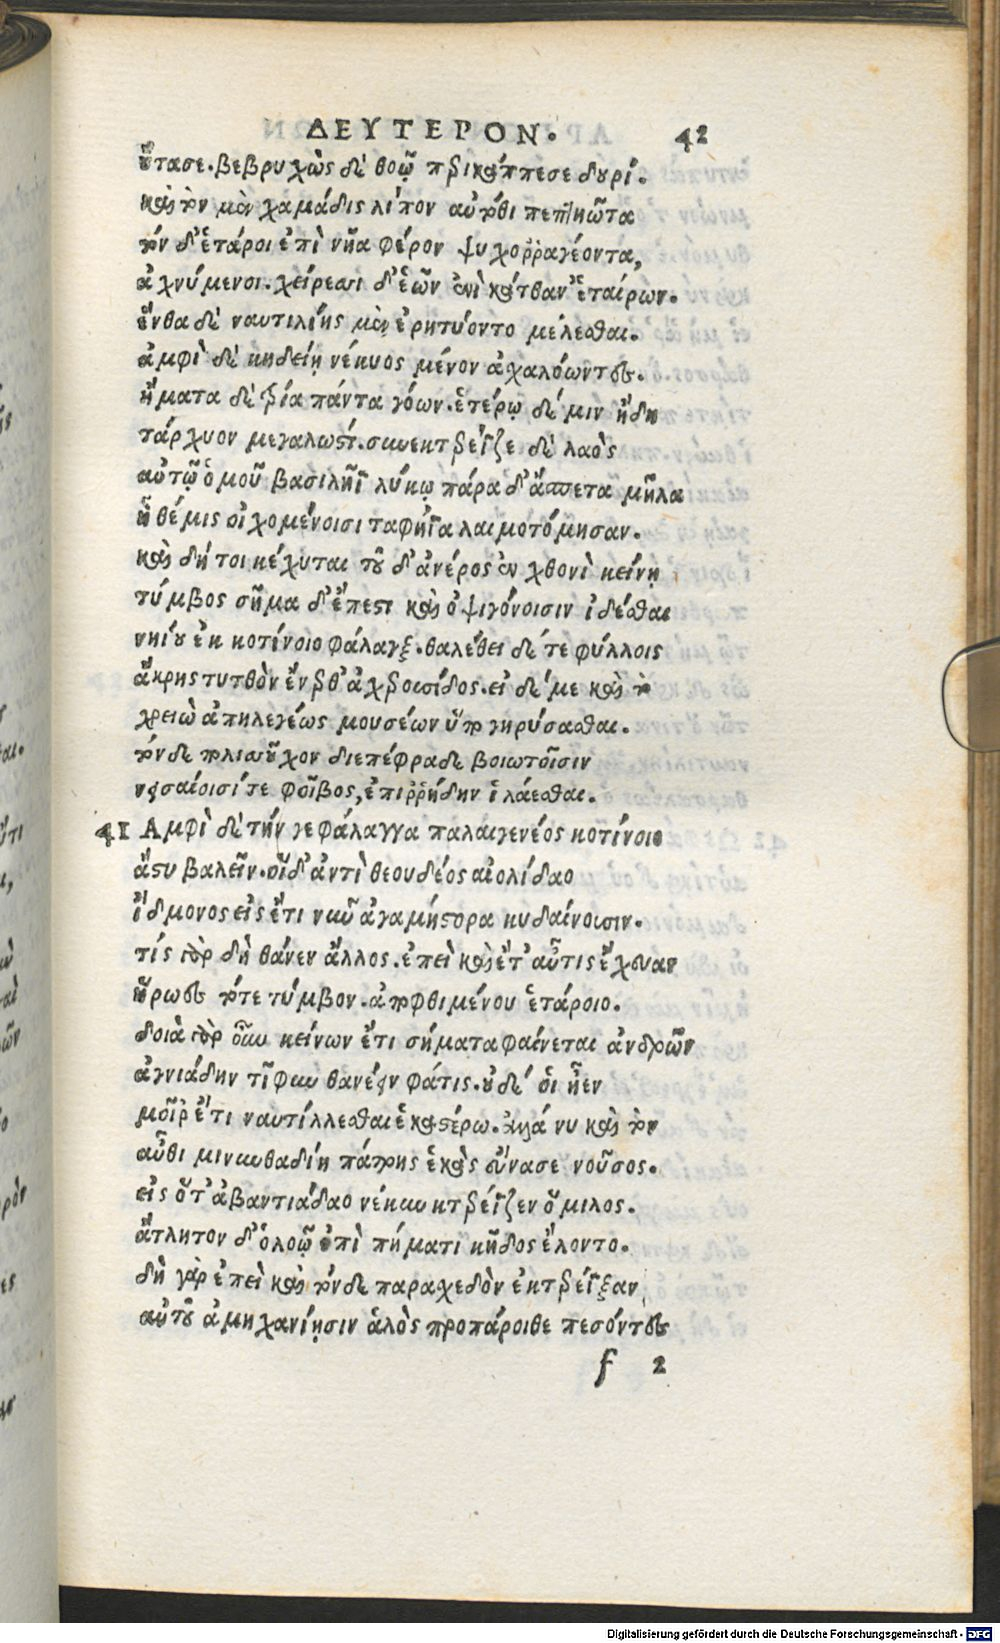 ΔΕΥΤΕΡΟΝ. 42
οὔτασε. βεβρυχὼς δὲ θοῷ περικάππεσε δουρί.
καὶ τὸν μὲν χαμάδις λίπον αὐτόθι πεπτηῶτα
τὸν δ' ἕταροι ἐπὶ νῆα φέρον ψυχορραγέοντα,
ἀχνύμενοι. χείρεσσι δ' ἑῶν ἐνὶ κάτθαν' ἑταίρων.
ἔνθα δὲ ναυτιλίης μὲν ἐρητύοντο μέλεσθαι.
ἀμφὶ δὲ κηδείῃ νέκυος μένον ἀχαλόωντες.
ἤματα δὲ τρία πάντα γόων. ἑτέρῳ δέ μιν ἤδη
τάρχυον μεγαλωστί. συνεκτερέϊζε δὲ λαὸς
αὐτῷ ὁμοῦ βασιλῆϊ λύκῳ πάρα δ' ἄσπετα μῆλα
ἣ θέμις οἰχομένοισι ταφήϊα λαιμοτόμησαν.
καὶ δή τοι κέχυται τοῦ δ' ἀνέρος ἐν χθονὶ κείνῃ
τύμβος σῆμα δ' ἔπεστι καὶ ὀψιγόνοισιν ἰδέσθαι
νηίου ἐκ κοτίνοιο φάλαγξ. θαλέθει δέ τε φύλλοις
ἄκρης τυτθὸν ἔνερθ' ἀχερουσίδος. εἰ δέ με καὶ τὸ
χρειὼ ἀπηλεγέως μουσέων ὕπο γηρύσασθαι.
τόνδε πολισσοῦχον διεπέφραδε βοιωτοῖσιν
νισαίοισί τε φοῖβος, ἐπιρρήδην ἱλάεσθαι.
41 Αμφὶ δὲ τήν γε φάλαγγα παλαιγενέος κοτίνοιο
ἄστυ βαλεῖν. οἱ δ' ἀντὶ θεουδέος αἰολίδαο
ἴδμονος εἰς ἔτι νῦν ἀγαμήστορα κυδαίνουσιν.
τίς γὰρ δὴ θάνεν ἄλλος. ἐπεὶ καὶ ἔτ' αὖτις ἔχουαν
ἥρωες τότε τύμβον. ἀποφθιμένου ἑτάροιο.
δοιὰ γὰρ οὖν κείνων ἔτι σήματα φαίνεται ἀνδρῶν
ἁγνιάδην τῖφυν θανέειν φάτις. οὐδέ οἱ ἦεν
μοῖρ' ἔτι ναυτίλλεσθαι ἑκαστέρω. ἀλλά νυ καὶ τὸν
αὖθι μινυνθαδίη πάτρης ἑκὰς εὔνασε νοῦσος.
εἰς ὅτ' ἀβαντιάδαο νέκυν κτερέϊζεν ὅμιλος.
ἄτλητον δ' ὀλοῷ ἐπὶ πήματι κῆδος ἕλοντο.
δὴ γὰρ ἐπεὶ καὶ τόνδε παρασχεδὸν ἐκτερέϊξαν
αὐτοῦ ἀμηχανίῃσιν ἁλὸς προπάροιθε πεσόντες
f 2
Digitalisierung gefördert durch die Deutsche Forschungsgemeinschaft - DFG